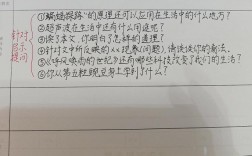 ①蝙蝠探路"的原理还可以应用在生活中的什么地方？
②超声波在生活中还有什么用途呢？
针对 ③读了本文，你明白了怎样的道理？
提示 ④针对文中所反映的(问题)，请谈谈你的看法。
提问 ⑤《呼风唤雨的世纪》还有哪些科技改变了我们的生活？
⑥你从第五粒豌豆身上学到了什么？